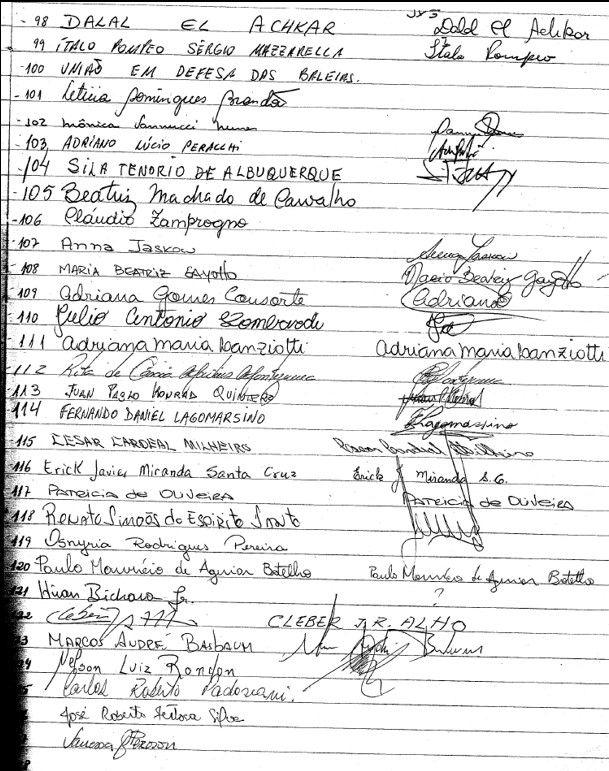 - 98 DALAL EL ACHKAR Dalal El Achkar
99 ÍTALO POMPEO SÉRGIO MAZZARELLA Ítalo Pompeo
-100 UNIÃO EM DEFESA DAS BALEIAS.
-101 Letícia Domingues Brandão
-102 Mônica Vannucci Nunes
-103 ADRIANO LÚCIO PERACCHI
-104 SILA TENORIO DE ALBUQUERQUE
-105 Beatriz Machado de Carvalho
-106 Claudio Zamprogno
-107 Anna Jaskow
-108 MARIA BEATRIZ GAYOTTO Maria Beatriz Gayotto
-109 Adriana Gomes Consorte Adriana
-110 Julio Antonio Lombardi
-111 Adriana Maria Lanziotti Adriana Maria Lanziotti
-112 Rita de Cássia
-113 JUAN PABLO QUINTERO
-114 FERNANDO DANIEL LAGOMARSINO Lagomarsino
-115 CESAR CARDEAL MILHEIRO
-116 Erick Javier Miranda Santa Cruz Erick J Miranda S.C.
-117 PATRICIA de OLIVEIRA PATRICIA de OLIVEIRA
-118 Renato Simões do Espirito Santo
-119 Isnyria Rodrigues Pereira
-120 Paulo Maurício de Aguiar Botelho Paulo Maurício de Aguiar Botelho
121 Hiran Bichara Jr. ?
22 Cleber CLEBER J.R. ALHO
3 MARCOS ANDRÉ BASBAUM
24 Nelson Luiz Rondon
5 Carlos Roberto Padovani.
José Roberto Silva
Vanessa